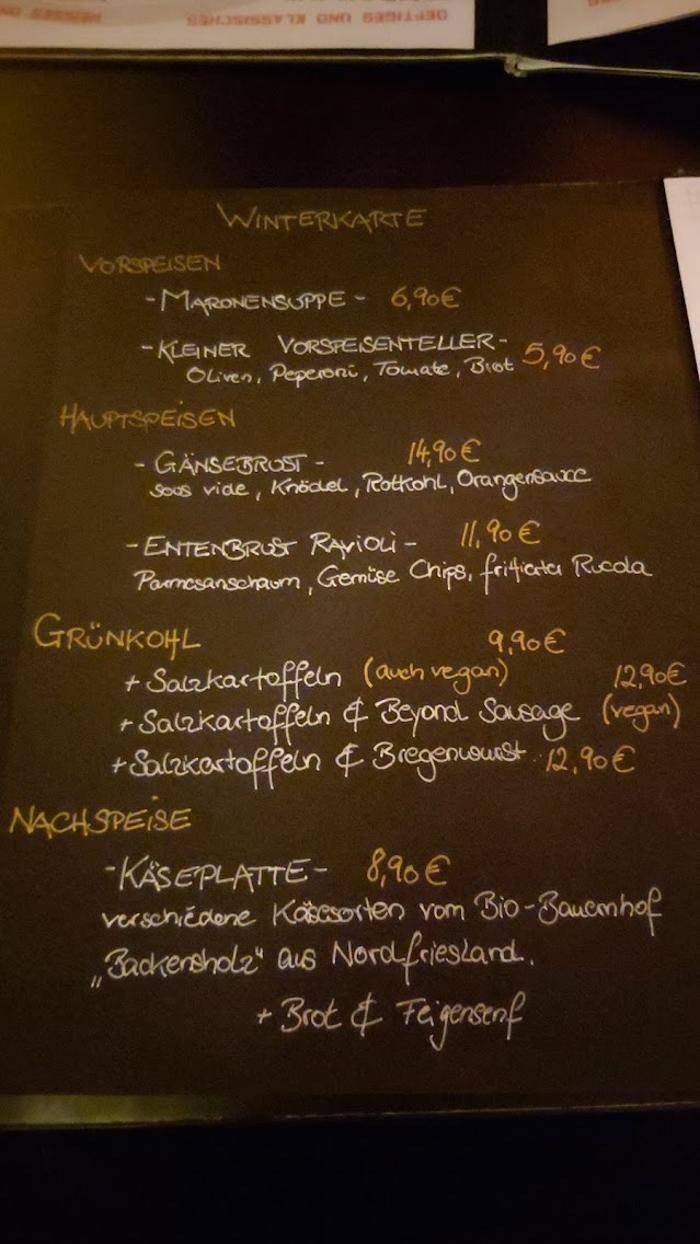 DEFTIGES UND KLASSISCHES
WINTERKARTE
VORSPEISEN
- MARONENSUPPE - 6,90€
- KLEINER VORSPEISENTELLER - 5,90€
Oliven, Peperoni, Tomate, Brot
HAUPTSPEISEN
- GÄNSEBRUST - 14,90€
sous vide, Knödel, Rotkohl, Orangensauce
- ENTENBRUST RAVIOLI - 11,90€
Parmesanschaum, Gemüse Chips, fritierter Rucola
GRÜNKOHL 9,90€
+ Salzkartoffeln (auch vegan) 12,90€
+ Salzkartoffeln & Beyond Sausage (vegan)
+ Salzkartoffeln & Bregenwurst 12,90€
NACHSPEISE
- KÄSEPLATTE - 8,90€
verschiedene Käsesorten vom Bio-Bauernhof
„Backensholz“ aus Nordfriesland.
+ Brot & Feigensenf